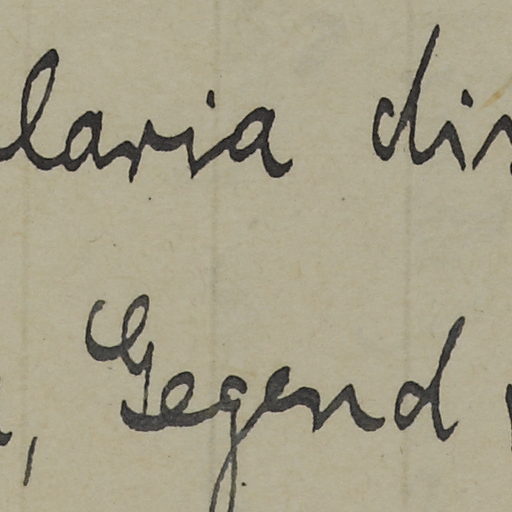 laria dis
, Gegend